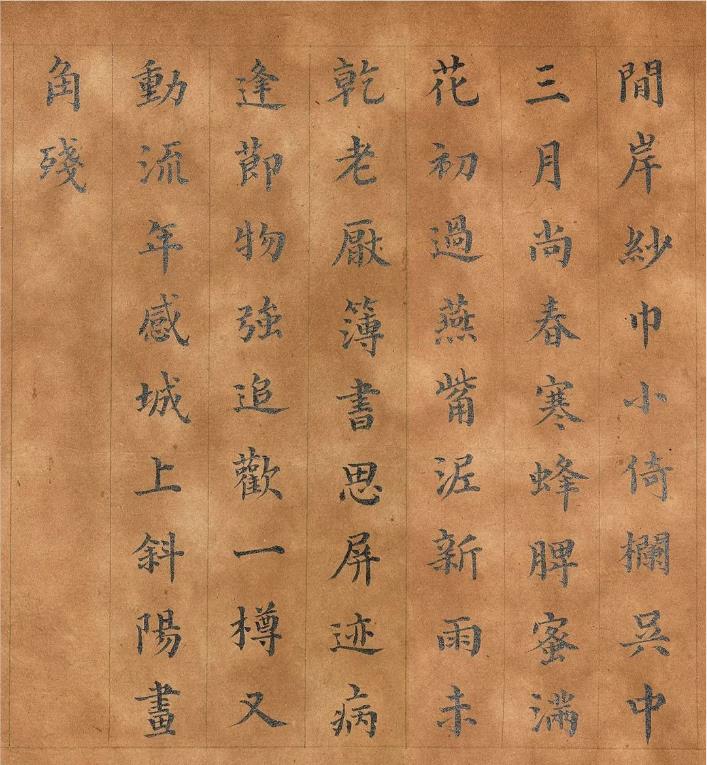 閒岸紗巾小倚欄吳中
三月尚春寒蜂脾蜜滿
花初過燕觜泥新雨未
乾老厭簿書思屏迹病
逢節物強追歡一樽又
動流年感城上斜陽畫
角殘